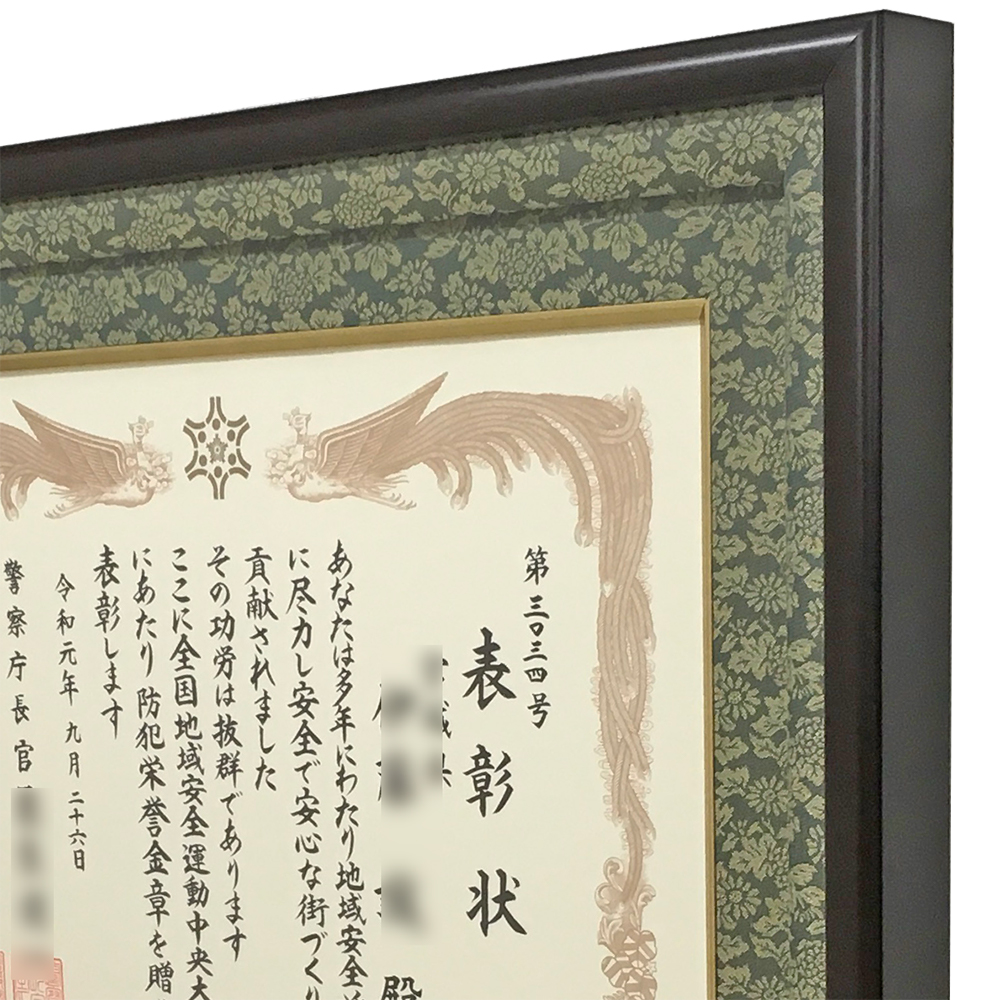 第三〇三四号
表彰状
殿
あなたは多年にわたり地域安全
に尽力し安全で安心な街づく
貢献されました
その功労は抜群であります
ここに全国地域安全運動中央大
にあたり防犯栄誉金章を贈
表彰します
令和元年九月二十六日
警察庁長官